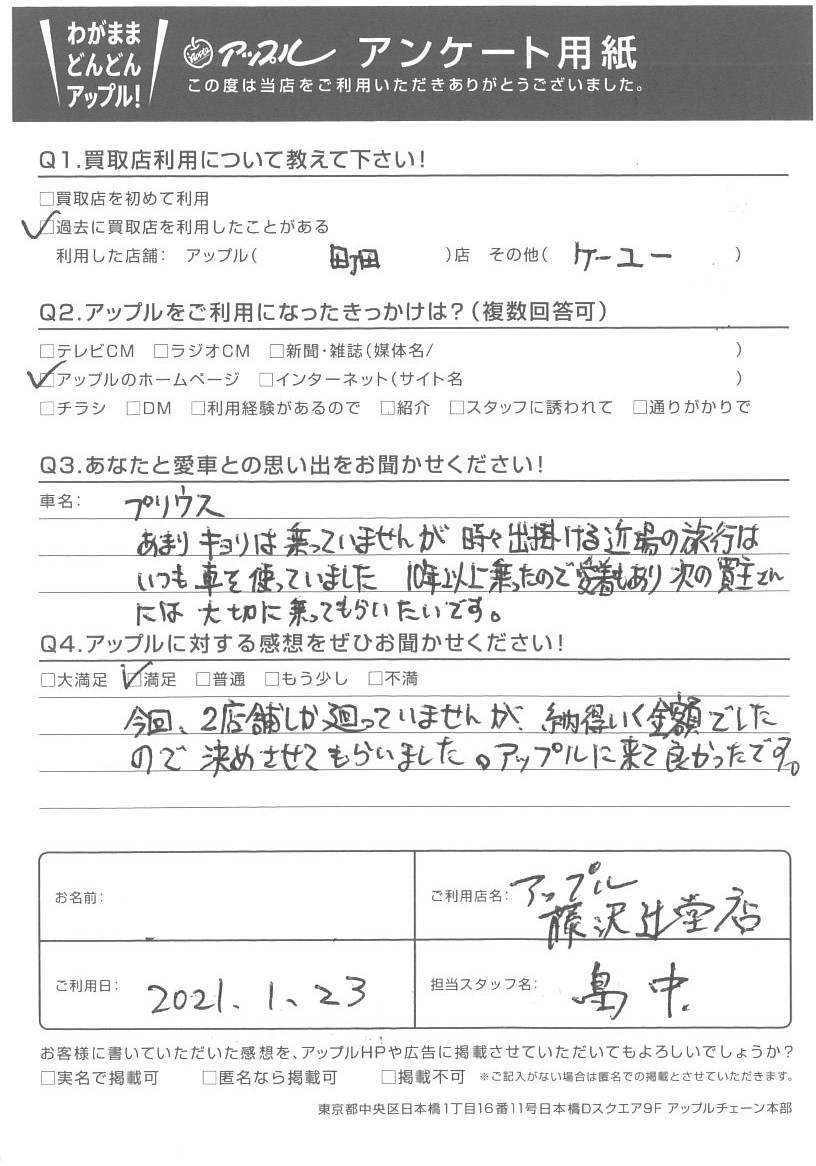 わがまま
どんどん
アップル!
アップル アンケート用紙
この度は当店をご利用いただきありがとうございました。
Q1.買取店利用について教えて下さい!
□買取店を初めて利用
☑過去に買取店を利用したことがある
利用した店舗: アップル( 町田 )店 その他( ケーユー )
Q2.アップルをご利用になったきっかけは?(複数回答可)
□テレビCM □ラジオCM □新聞・雑誌(媒体名/ )
☑アップルのホームページ □インターネット(サイト名 )
□チラシ □DM □利用経験があるので □紹介 □スタッフに誘われて □通りがかりで
Q3.あなたと愛車との思い出をお聞かせください!
車名: プリウス
あまりキョリは乗っていませんが 時々出掛ける近場の旅行は
いつも車を使っていました 10年以上乗ったので愛着もあり 次の買主さん
には大切に乗ってもらいたいです。
Q4.アップルに対する感想をぜひお聞かせください!
□大満足 ☑満足 □普通 □もう少し □不満
今回、2店舗しか廻っていませんが、納得いく金額でした
ので決めさせてもらいました。アップルに来て良かったです。
お名前:
ご利用店名: アップル
藤沢辻堂店
ご利用日: 2021.1.23
担当スタッフ名: 畠中
お客様に書いていただいた感想を、アップルHPや広告に掲載させていただいてもよろしいでしょうか?
□実名で掲載可 □匿名なら掲載可 □掲載不可 ※ご記入がない場合は匿名での掲載とさせていただきます。
東京都中央区日本橋1丁目16番11号日本橋Dスクエア9F アップルチェーン本部